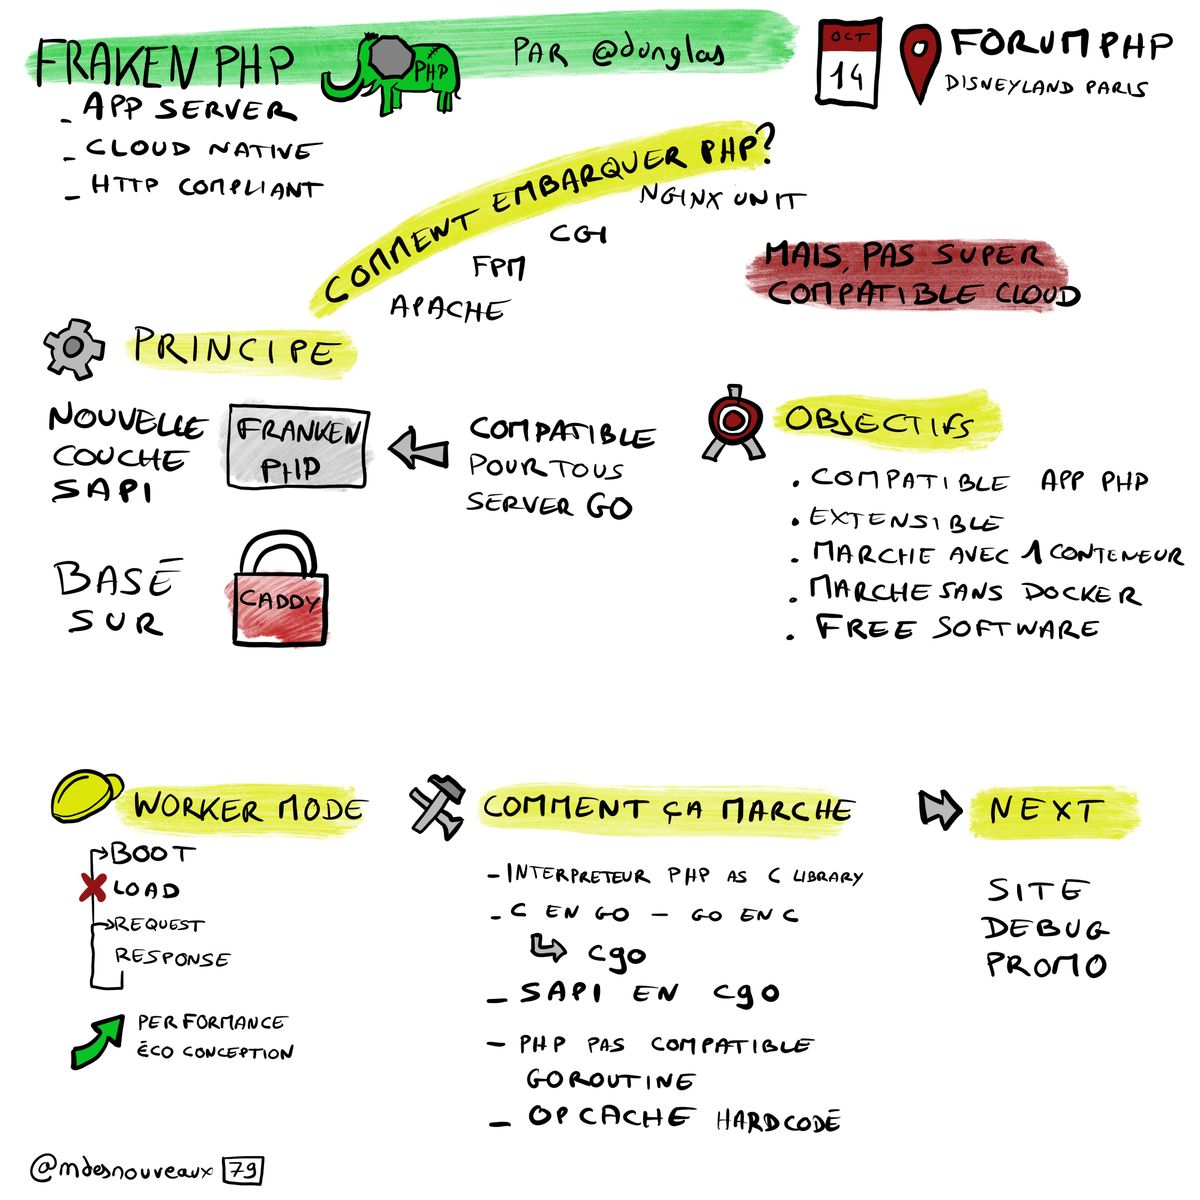 FRAKEN PHP
PHP
PAR @dunglas
OCT
14
FORUM PHP
DISNEYLAND PARIS
- APP SERVER
- CLOUD NATIVE
- HTTP COMPLIANT
COMMENT EMBARQUER PHP?
NGINX UNIT
CGI
FPM
APACHE
MAIS, PAS SUPER
COMPATIBLE CLOUD
PRINCIPE
NOUVELLE
COUCHE
SAPI
FRANKEN
PHP
COMPATIBLE
POUR TOUS
SERVER GO
BASÉ
SUR
CADDY
OBJECTIFS
. COMPATIBLE APP PHP
. EXTENSIBLE
. MARCHE AVEC 1 CONTENEUR
. MARCHE SANS DOCKER
. FREE SOFTWARE
WORKER MODE
BOOT
LOAD
REQUEST
RESPONSE
PERFORMANCE
ÉCO CONCEPTION
COMMENT ÇA MARCHE
- INTERPRETEUR PHP AS C LIBRARY
- C EN GO - GO EN C
cgo
- SAPI EN cgo
- PHP PAS COMPATIBLE
GOROUTINE
- OPCACHE HARDCODÉ
NEXT
SITE
DEBUG
PROMO
@mdesnouveaux 79